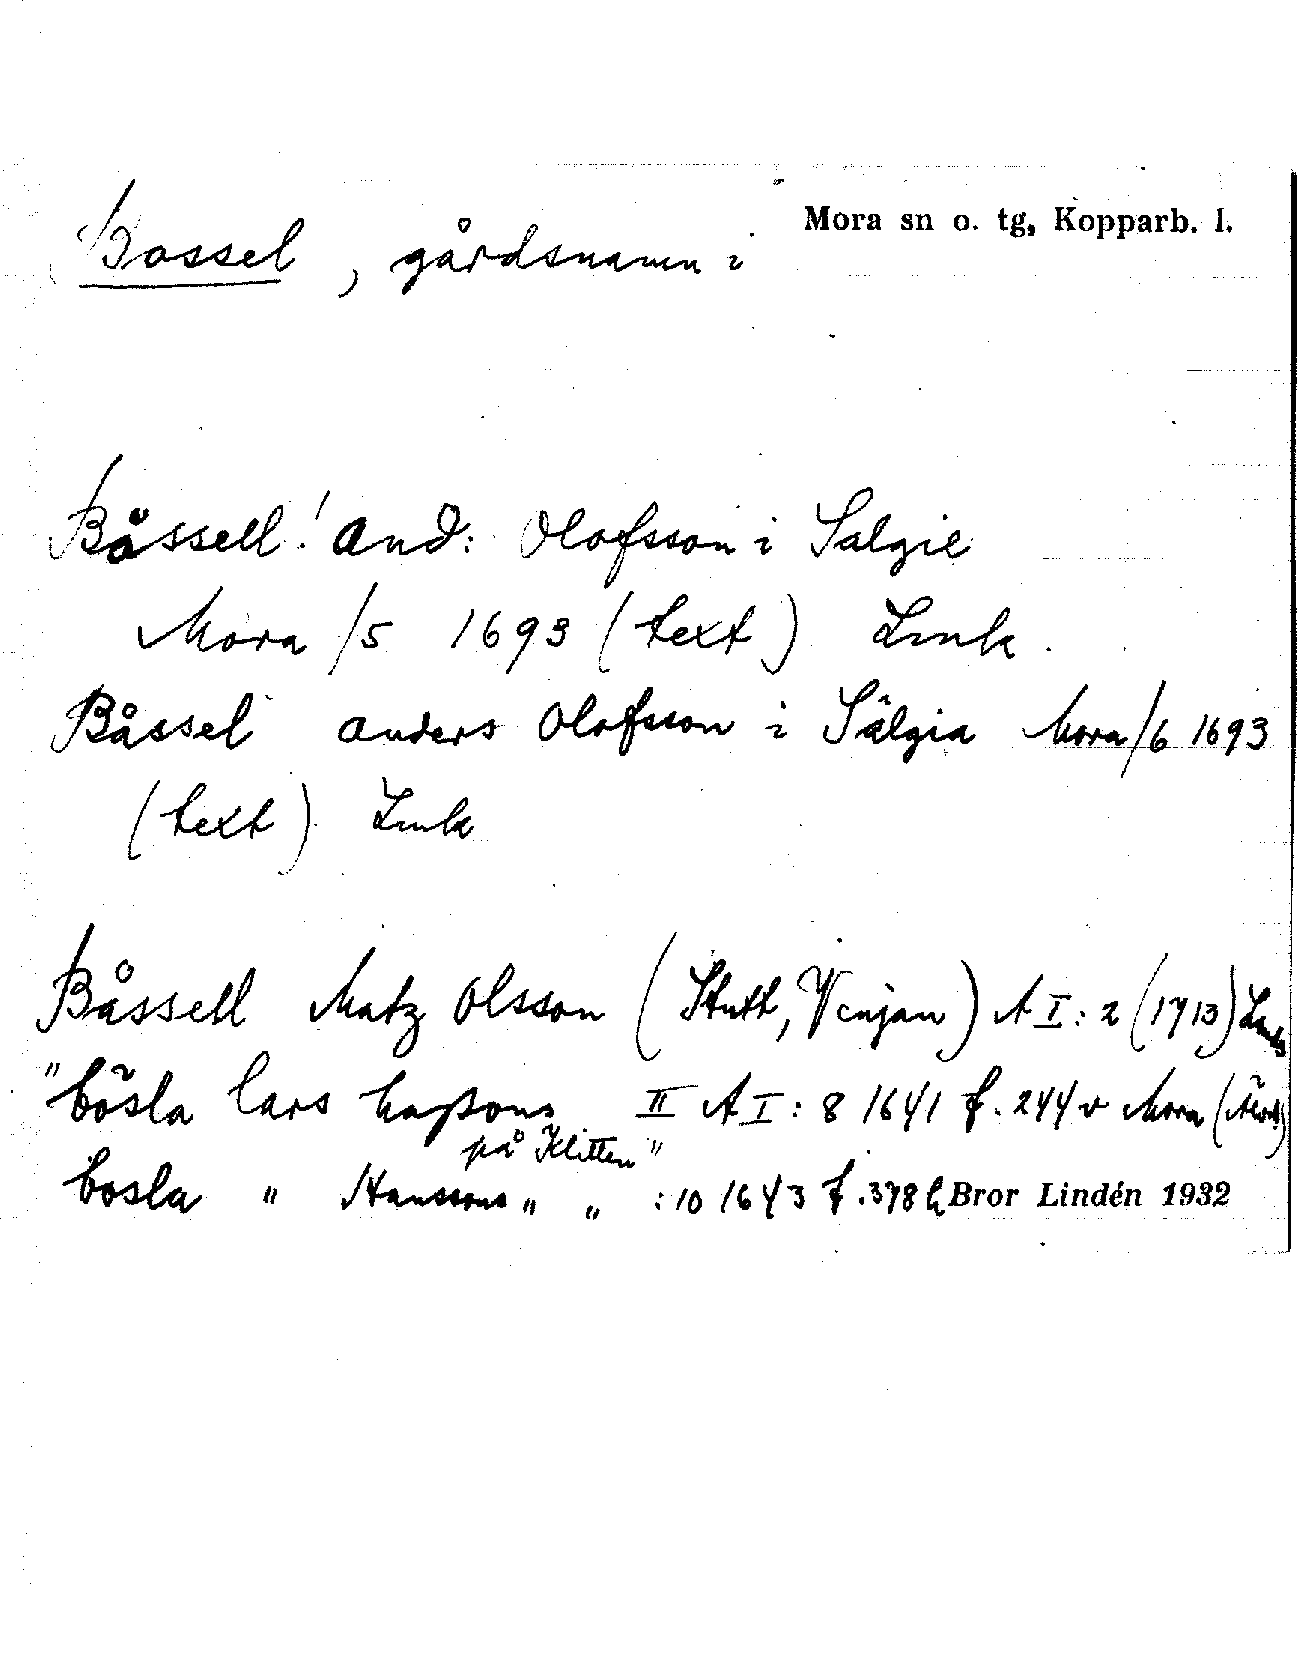 Bossel, gårdsnamn i Mora sn o. tg, Kopparb. l.
Båssell! And: Olofsson i Salgie
Mora /5 1693 (text) Link.
Båssel Anders Olofsson i Sälgia Mora/6 1693
(text) Link
Båssell Matz Olsson (Stutt, Venjan) A I:2 (1713)
"bösla lars haßons II A I:8 1641 f. 244 v Mora
på Klitten"
bosla " Hanssons " " :10 1643 f. 378 h Bror Lindén 1932